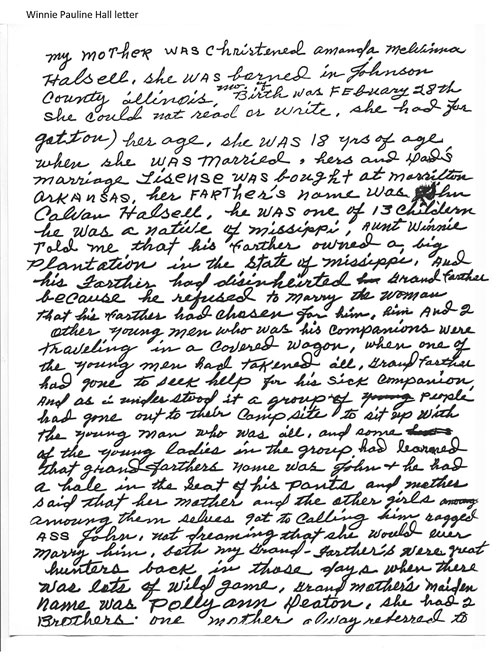 Winnie Pauline Hall letter
my mother was christened amanda melvinna
Halsell, she was borned in Johnson
County illinois, mo's Birth was February 28th
she could not read or write, she had for
gotton) her age, she was 18 yrs of age
when she was married, hers and Dad's
marriage Lisense was bought at morrilton
Arkansas, her Farther's name was John
Calvan Halsell, he was one of 13 Childern
he was a native of missippi, aunt Winnie
Told me that his Farther owned a big
Plantation in the State of missippi, and
his Farther had disinheirted Grand Farther
because he refused to marry the woman
that his Farther had chosen for him, him and 2
other young men who was his companions were
traveling in a Covered wagon, when one of
the young men had takened ill, Grand Farther
had gone to seek help for his sick companion,
And as i understood it a group of young People
had gone out to their Camp site to sit up with
the young man who was ill, and some
of the young ladies in the group had learned
that grand farthers name was John & he had
a hole in the Seat of his Pants and mother
said that her mother and the other girls among
amoung them selves got to Calling him ragged
ASS John, not dreaming that she would ever
marry him, both my Grand-Farther's were great
hunters back in those days when there
was lots of wild game, Grand mother's maiden
name was Polly ann Deaton, she had 2
Brothers: one mother alway referred to